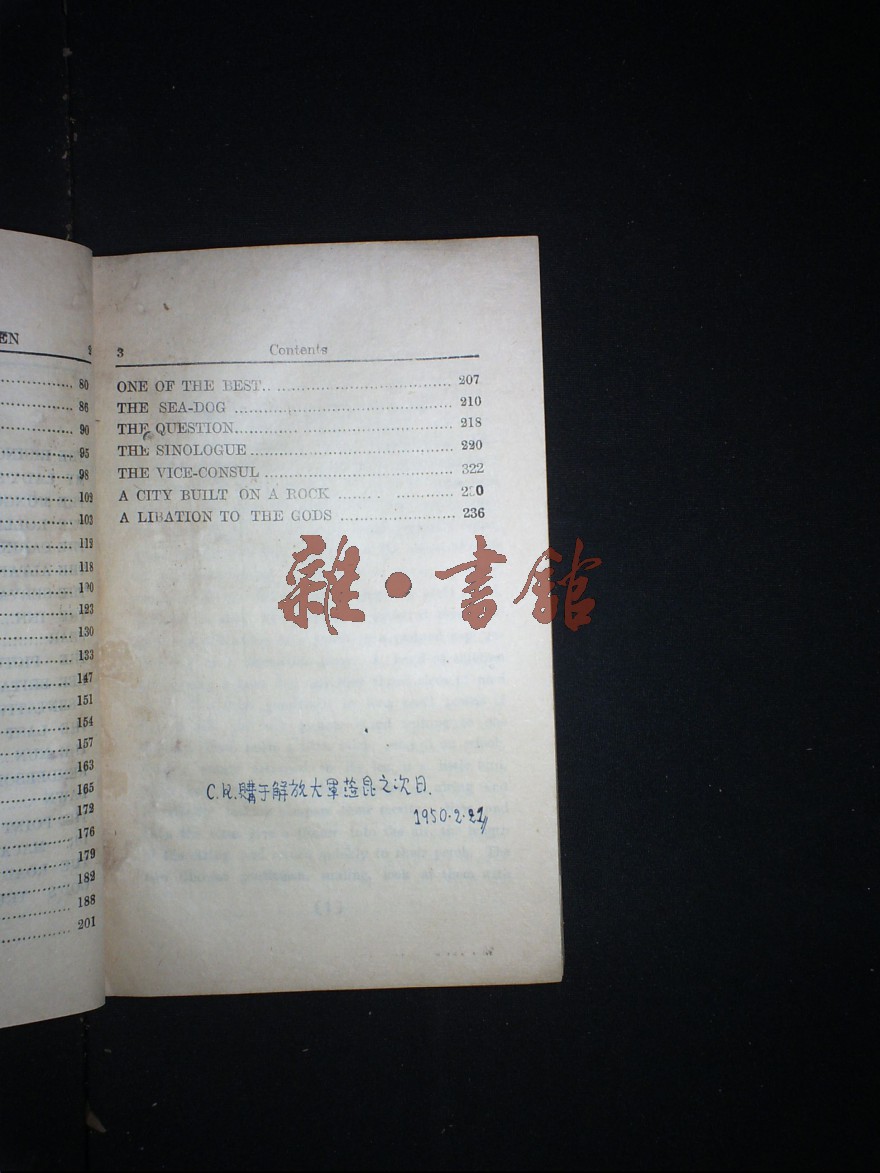 EN
80
86
90
95
98
102
103
112
118
120
123
130
133
147
151
154
157
163
165
172
176
179
182
188
201
3 Contents
ONE OF THE BEST 207
THE SEA-DOG 210
THE QUESTION 218
THE SINOLOGUE 220
THE VICE-CONSUL 322
A CITY BUILT ON A ROCK
A LIBATION TO THE GODS 236
雜·書館
C.K.購于解放大軍蒞昆之次日.
1950.2.21